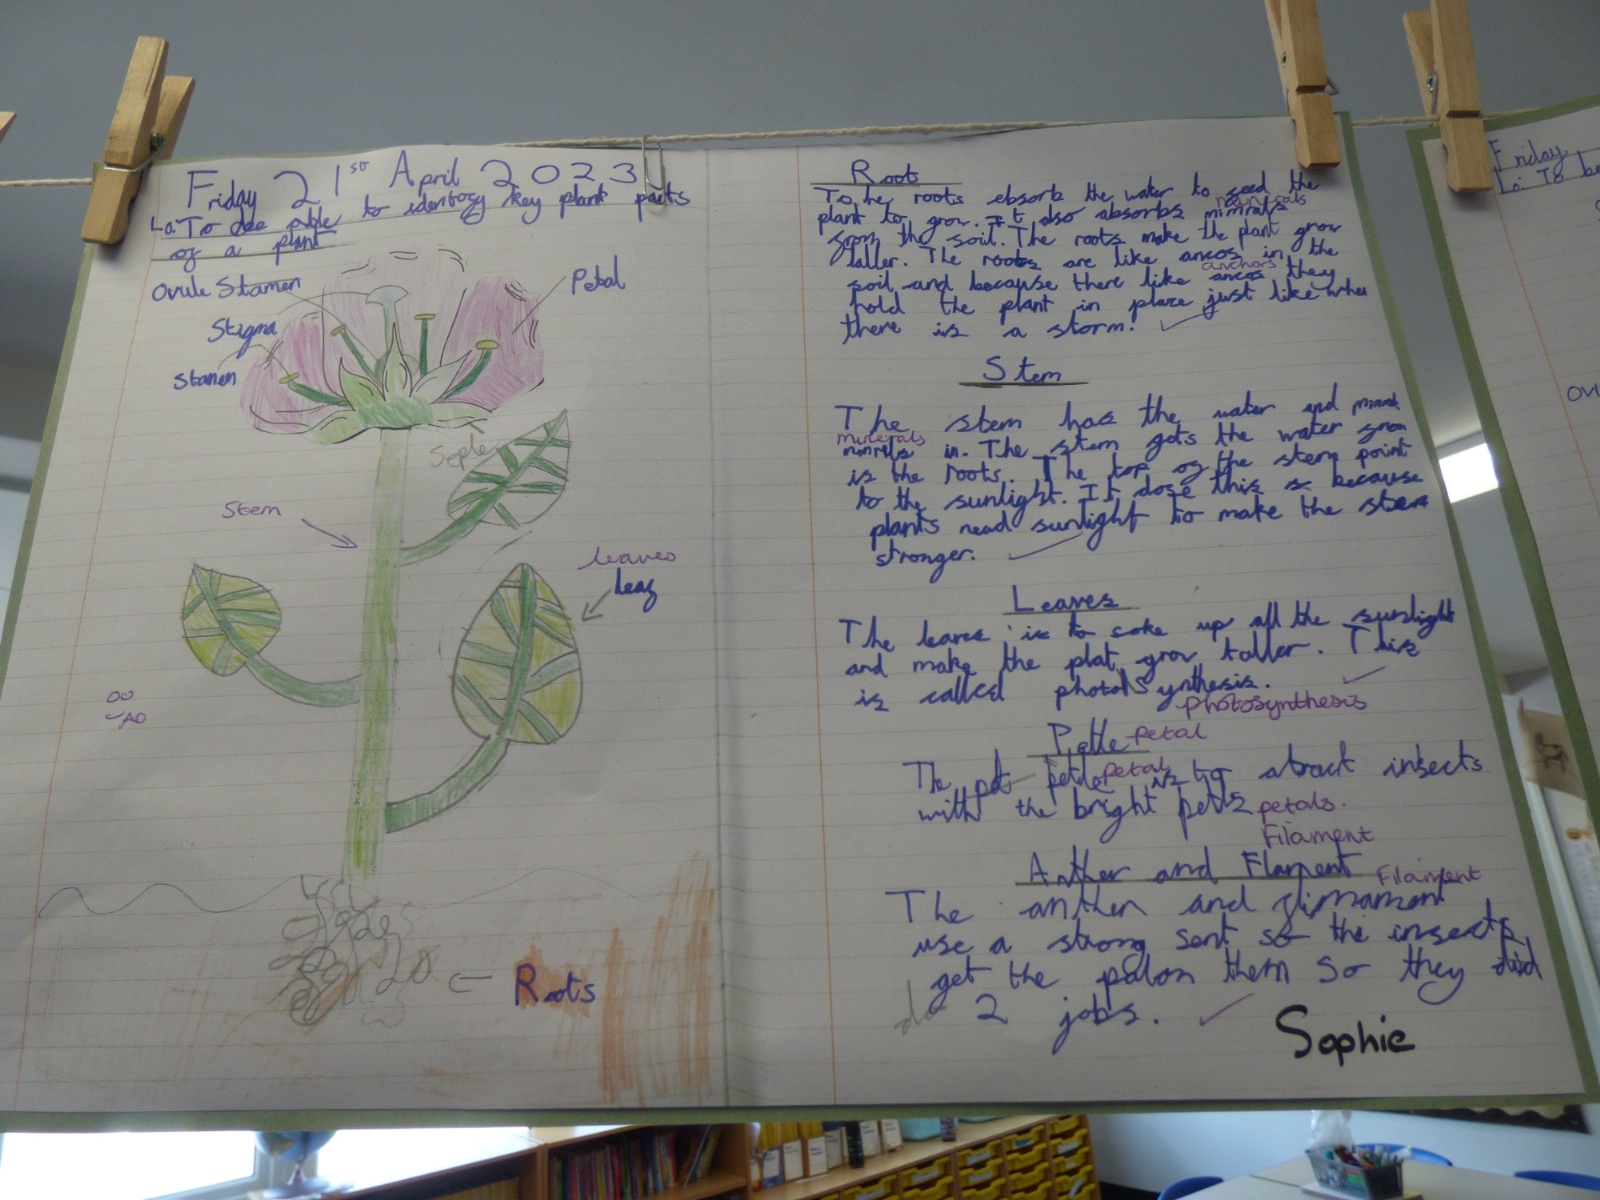 Friday 21st April 2023
Lo: To be able to identify key plant parts
of a plant
Ovule Stamen
Petal
Stigma
Stamen
Septe
Stem
leaves
leaf
Roots
Root
The roots absorb the water to feed the
minerals
plant to grow. It also absorbs minirals
from the soil. The roots make the plant grow
taller. The roots are like ancos in the
anchors
soil and because there like ancos they
hold the plant in place just like when
there is a storm.
Stem
The stem has the water and
minerals
in. The stem gets the water from
is the roots. The top of the stem point
to the sunlight. It dose this because
plants nead sunlight to make the stem
stronger.
Leaves
The leaves is to soke up all the sunlight
and make the plat grow taller. This
is called photolsynthesis.
photosynthesis
Petle petal
The pet petle petal is to atract insects
with the bright petls petals.
Filament
Anther and Flament Filament
The anther and
use a strong sent so the insects
get the palon them so they did
do 2 jobs.
Sophie
Friday
Lo: To be